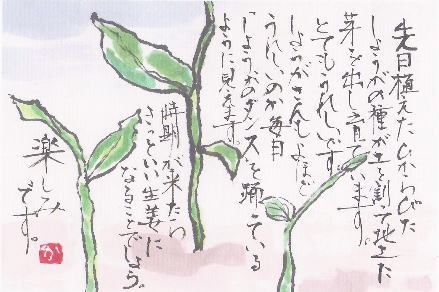 先日植えたひからびた
しょうがの種が土を割て地上に
芽を出し育ています。
とてもうれしいです。
しょうがさんもよほど
うれしいのか毎日
「しょうがのダンスを踊っている
ように見えます。
時期が来たら
きっといい生姜に
なることでしょう。
楽しみ
です。
か